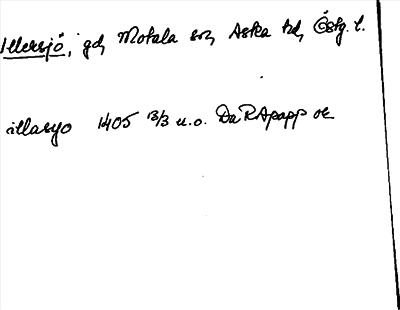 Illersjö, gd, Motala sn, Aska hd, Östg. l.
illasyo 1405 13/3 u.o. DaRApapp or